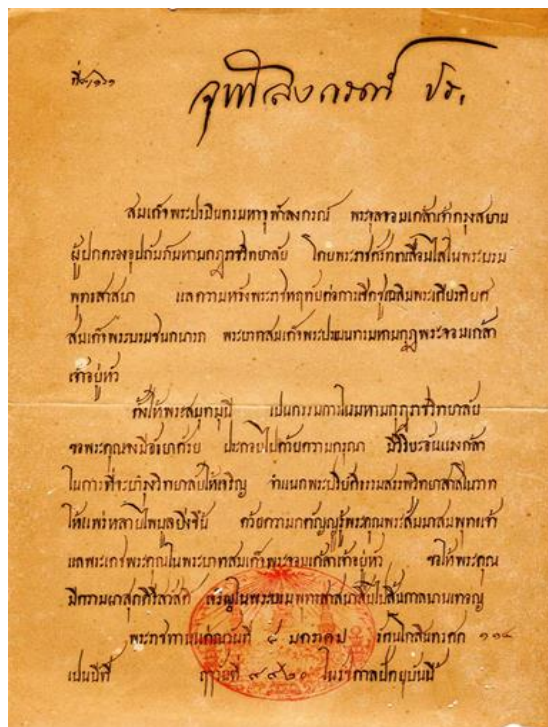 ที่
จุฬาลงกรณ์ ปร.
สมเด็จพระปรมินทรมหาจุฬาลงกรณ์ พระจุลจอมเกล้าเจ้ากรุงสยาม
ผู้ปกครองอุปถัมภ์มหามกุฎราชวิทยาลัย โดยพระราชศรัทธาเลื่อมใสในพระบรม
พุทธสาสนา แลความหวังพระราชหฤทัยต่อการเชิดชูเฉลิมพระเกียรติยศ
สมเด็จพระบรมชนกนารถ พระบาทสมเด็จพระปรเมนทรมหามกุฎพระจอมเกล้า
เจ้าอยู่หัว
ตั้งให้พระสมุทมุนี เปนกรรมการในมหามกุฎราชวิทยาลัย
ขอพระคุณจงมีอัธยาศรัย ประกอบไปด้วยความกรุณา มีวิริยะอันแรงกล้า
ในการที่จะบำรุงวิทยาลัยให้เจริญ จำแนกพระปริยัติธรรมสรรพวิทยาสาตรโนวาท
ให้แพร่หลายไพบูลยิ่งขึ้น ด้วยความกตัญญูรู้พระคุณพระสัมมาสัมพุทธเจ้า
แลพระเดชพระคุณในพระบาทสมเด็จพระจอมเกล้าเจ้าอยู่หัว ขอให้พระคุณ
มีความผาสุกศิริสวัสดิ์ เจริญในพระบรมพุทธสาสนาสืบไปสิ้นกาลนานเทอญ
พระราชทานแต่วันที่ ๔ มกราคม รัตนโกสินทรศก ๑๑๔
เป็นปีที่ ฤๅวันที่ ๙๙๒๐ ในราชกาลปัตยุบันนี้